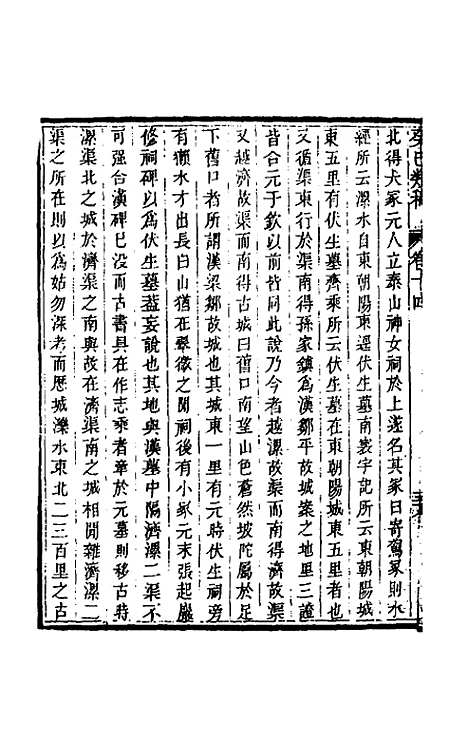 癸巳類稿 卷十四
北得大冢元人立泰山神女祠於上遂名其冢曰寄駕冢則水
經所云漯水自東朝陽東逕伏生墓南寰宇記所云東朝陽城
東五里有伏生墓齊乘所云伏生墓在東朝陽城東五里者也
又循渠東行於渠南得孫家鎮爲漢鄒平故城案之地里三證
皆合元于欽以前皆同此說乃今者越漯故渠而南得濟故渠
又越濟故渠而南得古城曰舊口南望山色蒼然坡陀屬於足
下舊口者所謂漢梁鄒故城也其城東一里有元時伏生祠旁
有獺水才出長白山猶在翠微之閒祠後有小冢元末張起巖
修祠碑以爲伏生墓蓋妄說也其地與漢墓中隔濟漯二渠不
可强合漢碑已没而古書具在作志乘者牽於元墓則移古時
漯渠北之城於濟渠之南與故在濟渠南之城相閒雜濟漯二
渠之所在則以爲姑勿深考而歷城濼水東北二三百里之古